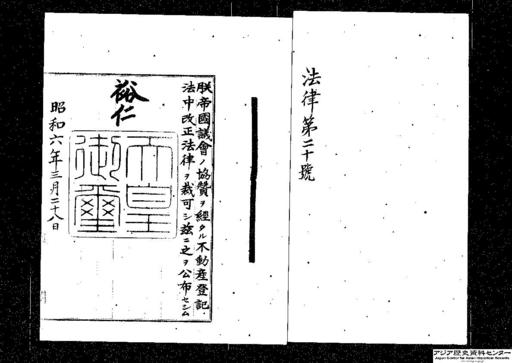 法律第二十號
朕帝國議會ノ協贊ヲ經タル不動産登記
法中改正法律ヲ裁可シ茲ニ之ヲ公布セシム
裕仁
天皇御璽
昭和六年三月二十八日
アジア歴史資料センター
Japan Center for Asian Historical Records